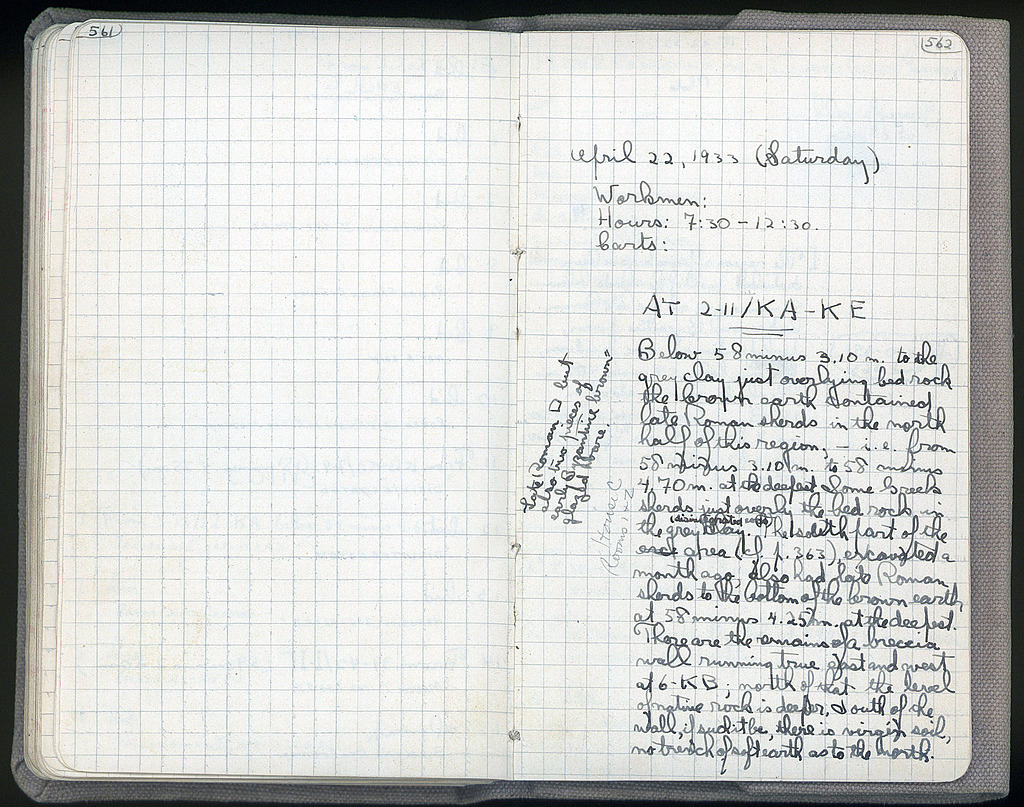 561
562
April 22, 1933 (Saturday)
Workmen:
Hours: 7:30 - 12:30.
Carts:
AT 2-11/KA-KE
Below 58 minus 3.10 m. to the
grey clay just overlying bed rock
the brown earth contained
late Roman sherds in the north
half of this region, - i.e. from
58 minus 3.10 m. to 58 minus
4.70 m. at the deepest. Some Greek
sherds just overly the bed rock in
(disintegrated rock)
the grey clay. The south part of the
area (cf. p. 363), excavated a
month ago, also had late Roman
sherds to the bottom of the brown earth,
at 58 minus 4.25 m. at the deepest.
There are the remains of a breccia
wall running true east and west
at 6-KB; north of that the level
of native rock is deeper, south of the
wall, if such it be, there is virgin soil,
no trench of soft earth as to the north.
Late Roman □ but
also two pieces of
early Byzantine brown-
glazed ware.
House C
Rooms 1+2